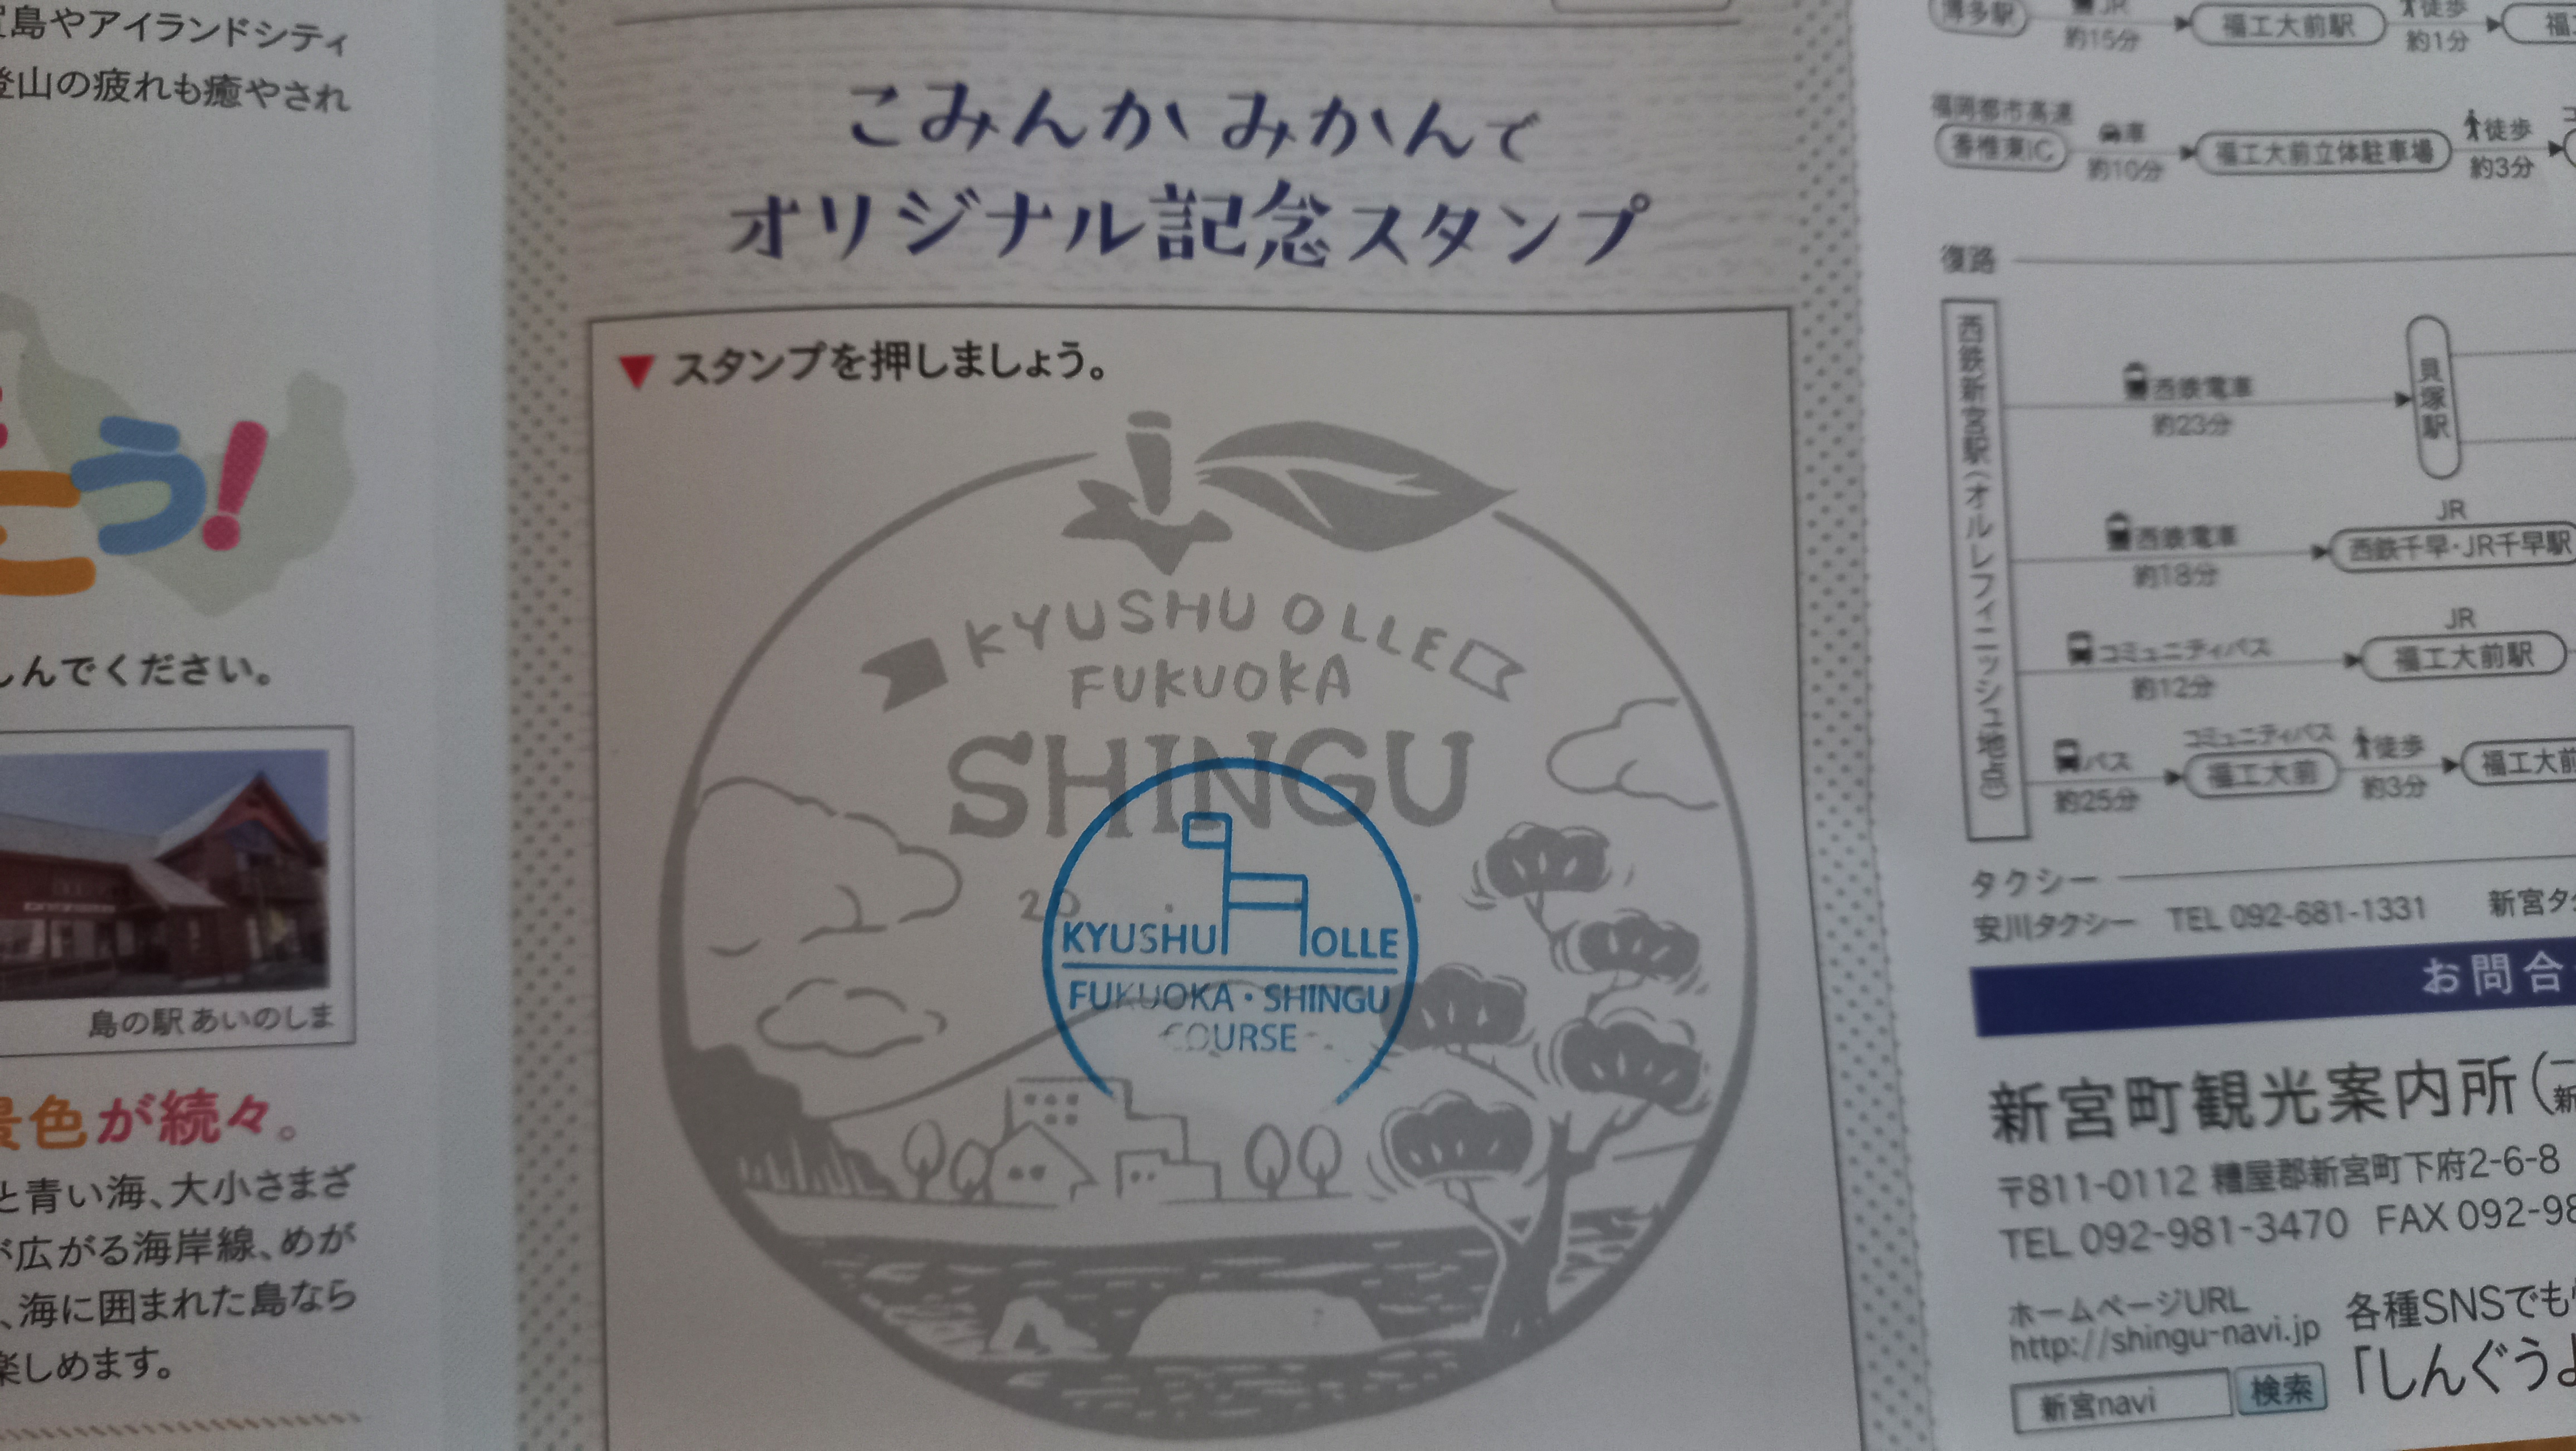 島やアイランドシティ
登山の疲れも癒やされ
う!
しんでください。
島の駅 あいのしま
景色が続々。
と青い海、大小さまざ
が広がる海岸線、めが
、海に囲まれた島なら
楽しめます。
こみんか みかんで
オリジナル記念スタンプ
▼ スタンプを押しましょう。
KYUSHU OLLE
FUKUOKA
SHINGU
20 . .
KYUSHU OLLE
FUKUOKA・SHINGU
COURSE
博多駅 JR 約15分 福工大前駅 徒歩 約1分 福
福岡都市高速
香椎東IC 車 約10分 福工大前立体駐車場 徒歩 約3分
復路
西鉄新宮駅(オルレフィニッシュ地点)
西鉄電車 約23分 貝塚駅
西鉄電車 約18分 JR 西鉄千早・JR千早駅
コミュニティバス 約12分 JR 福工大前駅
バス 約25分 コミュニティバス 福工大前 徒歩 約3分 福工大前
タクシー
安川タクシー TEL 092-681-1331 新宮タ
お問合
新宮町観光案内所(
〒811-0112 糟屋郡新宮町下府2-6-8
TEL 092-981-3470 FAX 092-98
ホームページURL
http://shingu-navi.jp
新宮navi 検索
各種SNSでも
「しんぐうよ